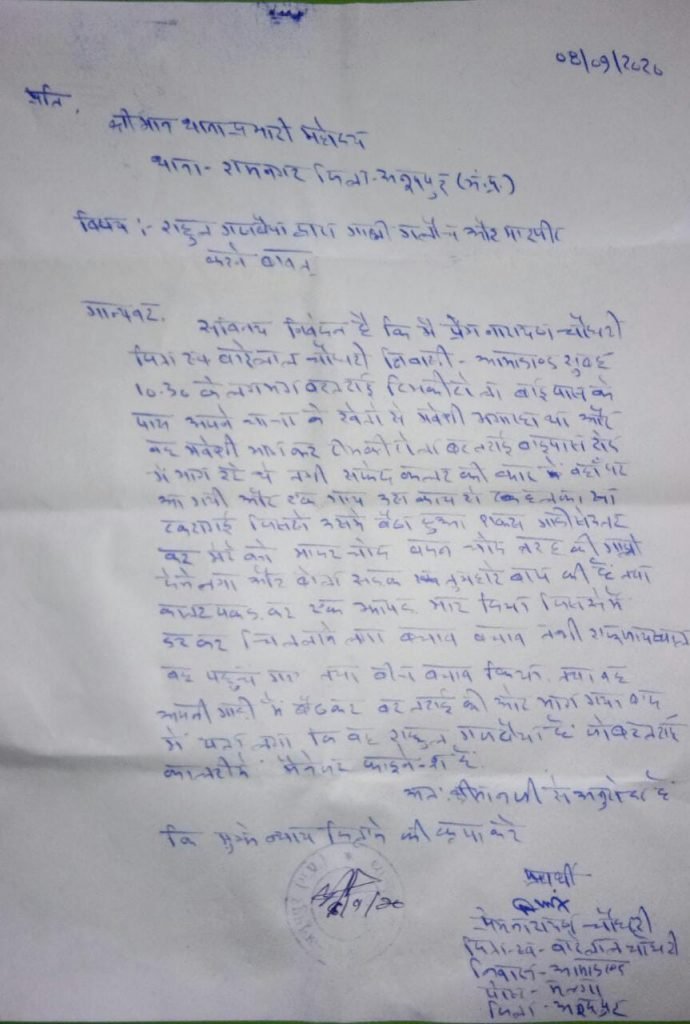 08/09/2020
प्रति,
श्रीमान थाना प्रभारी महोदय
थाना- रामनगर जिला-अनूपपुर (म.प्र.)
विषय :- राहुल द्वारा गाली गलौच और मारपीट
करने बावत
मान्यवर,
सविनय निवेदन है कि मै प्रेम नारायण चौधरी
पिता स्व चौधरी निवासी - आमाडांड सुबह
10.30 के लगभग बरतराई टिमकीटोला बाईपास के
पास अपने के खेतो से मवेशी भगा रहा था और
वह मवेशी भाग कर टिमकीटोला बरतराई बाईपास रोड
में भाग रहे थे तभी सफेद कलर की कार वहाँ पर
आ गयी और एक गाय उस कार से हलका सा
टकराई जिससे उसमे बैठा हुआ गाडी से उतर
कर मेरे को मादर चोद बहन चोद तरह की गाली
देने लगा और बोला सडक तुम्हारे बाप की है तथा
कालर पकड़ कर एक झापड़ मार दिया जिससे मै
डर कर चिल्लाने लगा बचाव बचाव तभी
वह पहुंच गए तथा बीच बचाव किया, तथा वह
अपनी गाडी में बैठकर बरतराई की ओर भाग गया बाद
में पता लगा कि वह राहुल है जो बरतराई
कालरी में मैनेजर फाइनेन्श है
अतः श्रीमान जी से अनुरोध है
कि मुझे न्याय दिलाने की कृपा करे
प्रार्थी
8/9/20
प्रेमनारायण चौधरी
पिता-स्व- चौधरी
निवास- आमाडांड
पोस्ट-
जिला- अनूपपुर